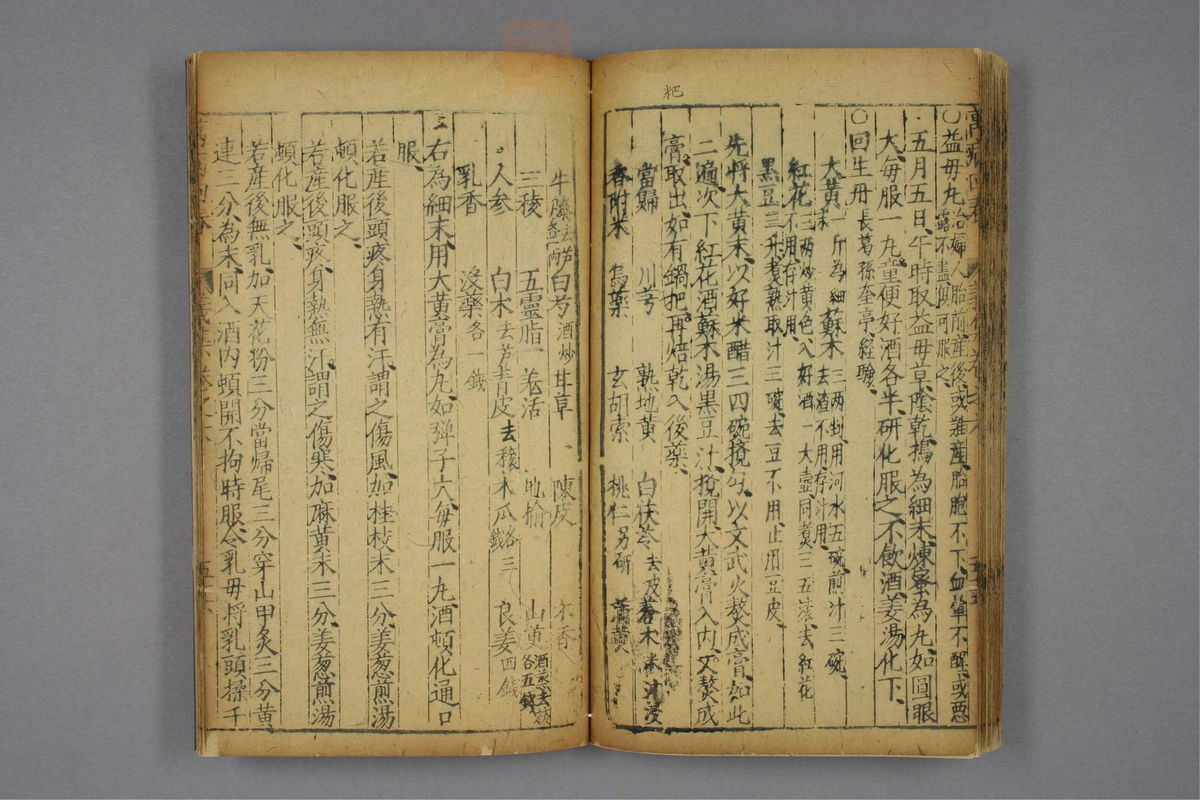 粑
萬病回春
○益母丸治婦人胎前産後或難産胎胞不下血暈不醒或惡
露不盡俱可服之
五月五日午時取益母草陰乾搗為細末煉蜜為丸如圓眼
大每服一丸童便好酒各半研化服之不飲酒姜湯化下
○回生丹 長葛孫奎亭經驗
大黃末一斤為細 蘇木三兩剉用河水五碗煎汁三碗
去渣不用存汁用
紅花三兩炒黃色入好酒一大壺同煮三五滾去紅花
不用存汁用
黑豆三升煮熟取汁三碗去豆不用止用豆皮
先將大黃末以好米醋三四碗攪勻以文武火熬成膏如此
二遍次下紅花酒蘇木湯黑豆汁攪開大黃膏入內又熬成
膏取出如有鍋把再焙乾入後藥
當歸 川芎 熟地黃 白茯苓去皮 蒼木米汁浸
香附米 烏藥 玄胡索 桃仁另研 蒲黃
牛膝去芦各一兩 白芍酒炒 甘草 陳皮 木香
三稜 五靈脂 羌活 地榆 山萸酒蒸去核各五錢
人參 白木去芦 青皮去穰 木瓜各三錢 良姜四錢
乳香 沒藥各一錢
右為細末用大黃膏為丸如彈子大每服一丸酒頓化通口
服
若産後頭疼身熱有汗謂之傷風加桂枝末三分姜葱煎湯
頓化服之
若産後頭疼身熱無汗謂之傷寒加麻黃末三分姜葱煎湯
頓化服之
若産後無乳加天花粉三分當歸尾三分穿山甲炙三分黃
連三分為末同入酒內頓開不拘時服令乳母將乳頭揉千